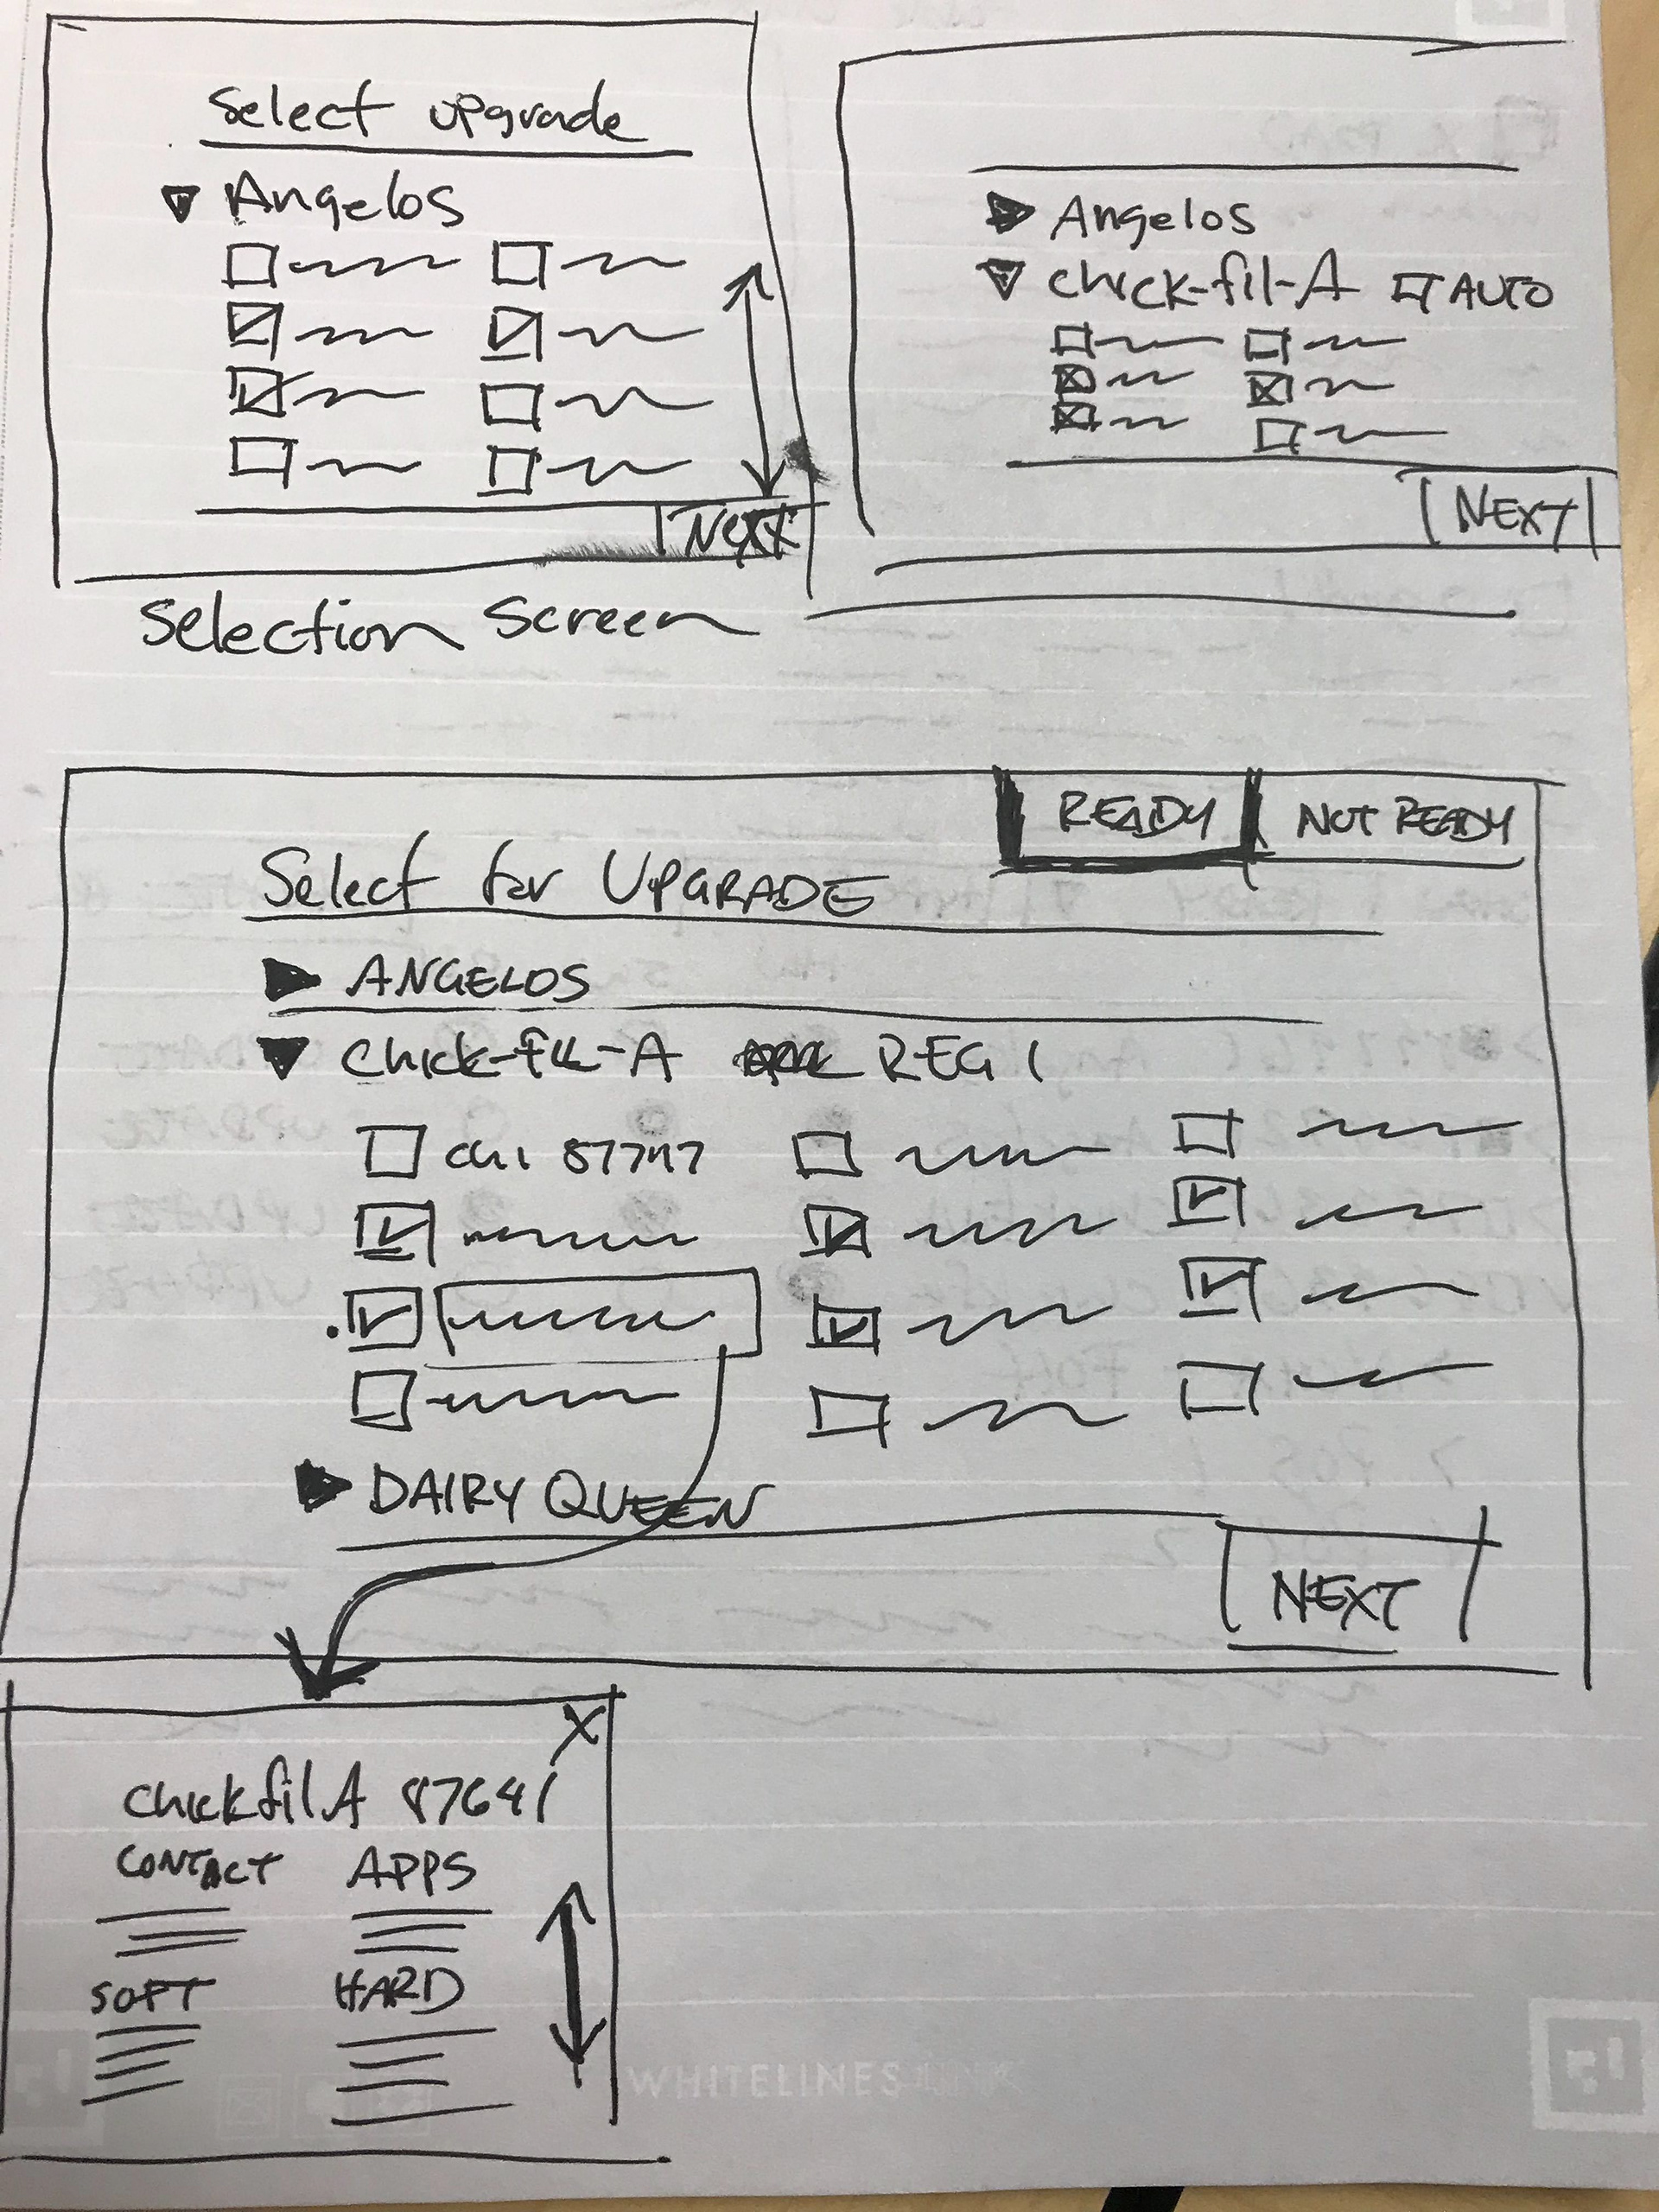 Select upgrade
Angelos
Next
Selection Screen
Angelos
chick-fil-A AUTO
NEXT
READY
NOT READY
Select for UPGRADE
ANGELOS
chick-fil-A REG 1
DAIRY QUEEN
NEXT
X
chickfilA 87641
CONTACT APPS
SOFT HARD
WHITELINES LINK